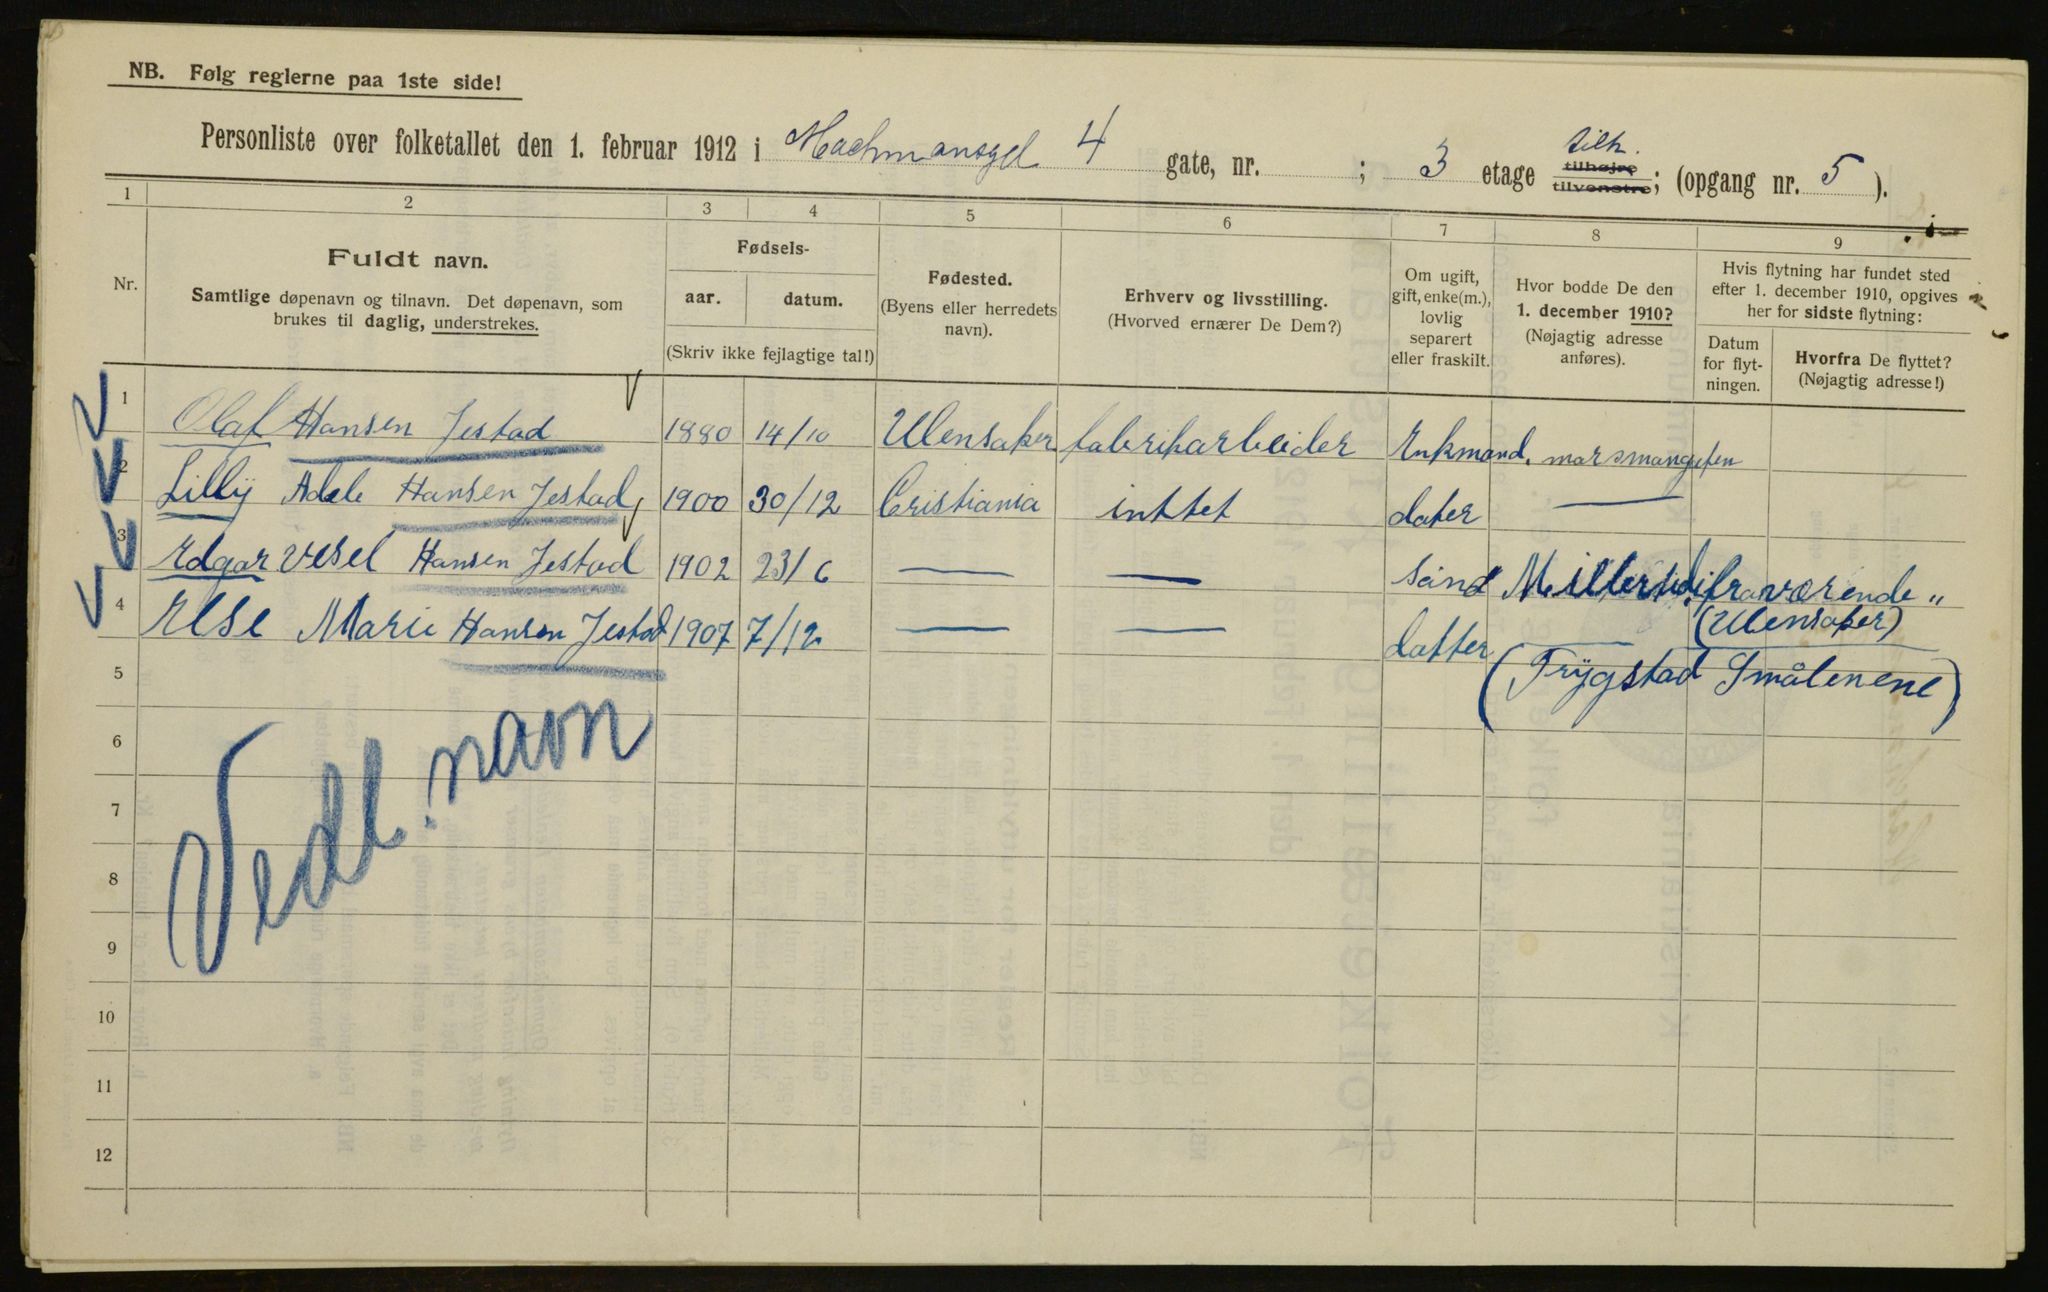 NB. Følg reglerne paa 1ste side!
Personliste over folketallet den 1. februar 1912 i Machmansgt 4 gate, nr. ; 3 etage tilh. tilhøjre tilvenstre; (opgang nr. 5 ).
1 2 3 4 5 6 7 8 9
Nr.
Fuldt navn.
Samtlige døpenavn og tilnavn. Det døpenavn, som
brukes til daglig, understrekes.
Fødsels-
aar. datum.
(Skriv ikke fejlagtige tal!)
Fødested.
(Byens eller herredets
navn).
Erhverv og livsstilling.
(Hvorved ernærer De Dem?)
Om ugift,
gift, enke(m.),
lovlig
separert
eller fraskilt.
Hvor bodde De den
1. december 1910?
(Nøjagtig adresse
anføres).
Hvis flytning har fundet sted
efter 1. december 1910, opgives
her for sidste flytning:
Datum
for flyt-
ningen.
Hvorfra De flyttet?
(Nøjagtig adresse!)
1 Olaf Hansen Jestad 1880 14/10 Ulensaker fabrikarbeider Enkmand.
2 Lilly Adele Hansen Jestad 1900 30/12 Cristiania inttet dater —
3 Edgar Vesel Hansen Jestad 1902 23/6 — — sønd Millertidi fraværende "
(Ulensaker)
4 Else Marie Hansen Jestad 1907 7/12 — — datter —
(Trygstad Smålenene)
5
6
Vedl. navn
7
8
9
10
11
12